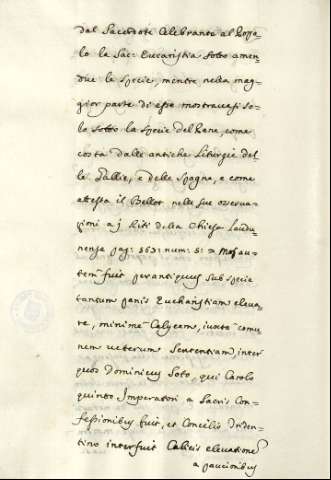 dal Sacerdote Celebrante al Popo=
lo la Sac: Eucaristia sotto amen=
due le specie, mentre nella mag=
gior parte di esse mostravasi so=
lo sotto la specie del Pane, come
costa dalle antiche Liturgie del=
le Gallie, e delle Spagna, e come
attesta il Bellot nelle sue osserva=
zioni a j Riti della Chiesa Laudu=
nense pag: 863: num: 8: Mos au=
tem fuit perantiquus sub specie
tantum panis Eucharistiam eleva=
re, minime Calycem, iuxta comu=
nem veterum Sententiam, inter
quos Dominicus Soto, qui Carolo
quinto Imperatori a Sacris Con=
fessionibus fuit, et Concilio Triden=
tino interfuit Calicis elevatione
a paucioribus